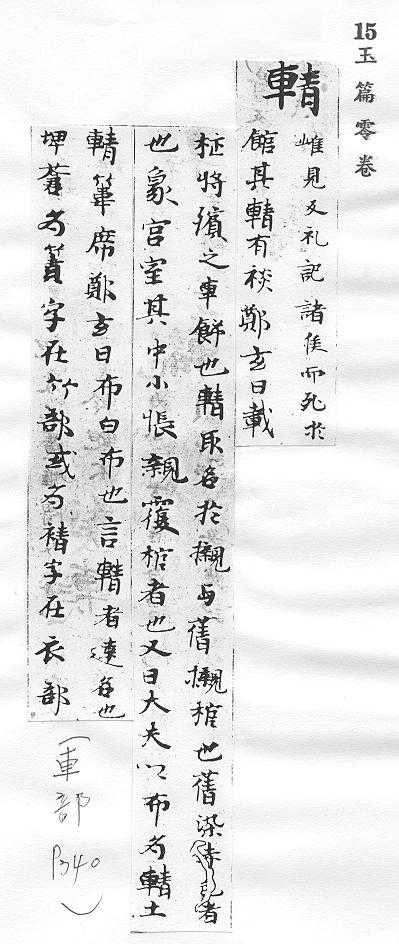 15 玉篇零卷
輤 雌見反礼記諸侯而死於
館其輤有裧鄭玄曰載
柩將殯之車餝也輤取名於櫬与蒨櫬棺也蒨染赤色者
也象宫室其中小帳親覆棺者也又曰大夫以布为輤士
輤葦席鄭玄曰布白布也言輤者達名也
埤蒼为字在竹部或为字在衣部
(車部 P340)